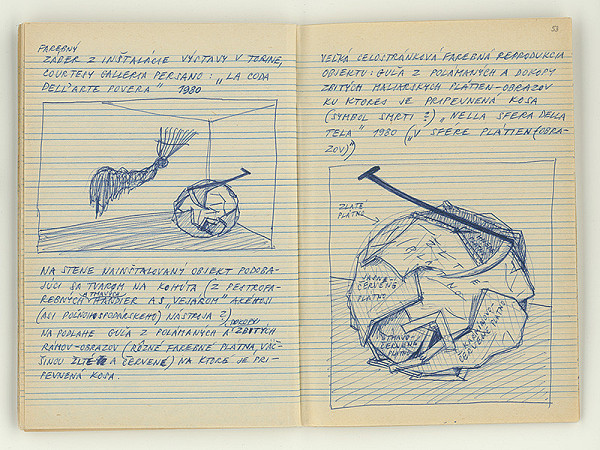 FAREBNÝ
ZÁBER Z INŠTALÁCIE VÝSTAVY V TORINE,
COURTESY GALLERIA PERSANO: „LA CODA
DELL'ARTE POVERA" 1980
NA STENE NAINŠTALOVANÝ OBJEKT PODOBA-
JÚCI SA TVAROM NA KOHÚTA (Z PESTROFA-
REBNÝCH HANDIER A S „VEJÁROM" AKÉHOSI
(ACI POĽNOHOSPODÁRSKEHO) NÁSTROJA ?)
NA PODLAHE GUĽA Z POLÁMANÝCH A DOKOPY ZBITÝCH
RÁMOV-OBRAZOV (RÔZNE FAREBNÉ PLÁTNA, VÄČ-
ŠINOU ŽLTÉ A ČERVENÉ) NA KTORE JE PRI-
PEVNENÁ KOSA.
53
VEĽKÁ CELOSTRÁNKOVÁ FAREBNÁ REPRODUKCIA
OBJEKTU: GUĽA Z POLÁMANÝCH A DOKOPY
ZBITÝCH MALIARSKYCH PLÁTIEN-OBRAZOV
KU KTOREJ JE PRIPEVNENÁ KOSA
(SYMBOL SMRTI ?) „NELLA SFERA DELLA
TELA" 1980 („V SFÉRE PLÁTIEN (OBRA-
ZOV)")
ZLATÉ
PLÁTNO
ŽLTÉ
JASNO-
ČERVENÉ
PLÁTNO
TMAVO-
ČERVENÉ
PLÁTNO
ČERVENÉ PLÁTNO